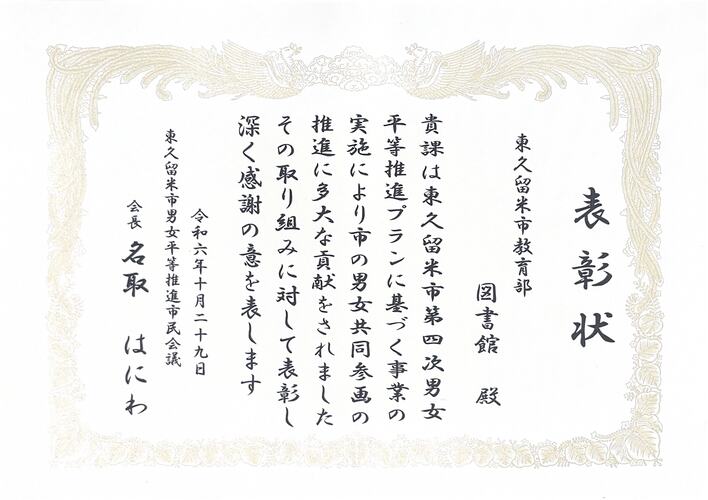 表彰状
東久留米市教育部
図書館 殿
貴課は東久留米市第四次男女
平等推進プランに基づく事業の
実施により市の男女共同参画の
推進に多大な貢献をされました
その取り組みに対して表彰し
深く感謝の意を表します
令和六年十月二十九日
東久留米市男女平等推進市民会議
会長 名取 はにわ